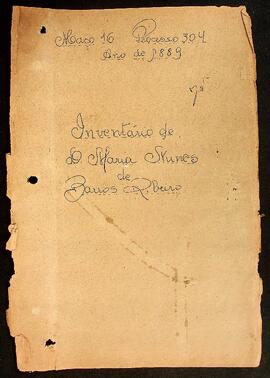 Maço 16 Processo 304
Ano de 1889
Inventário de
D Maria Nunes
de
Barros Ribeiro